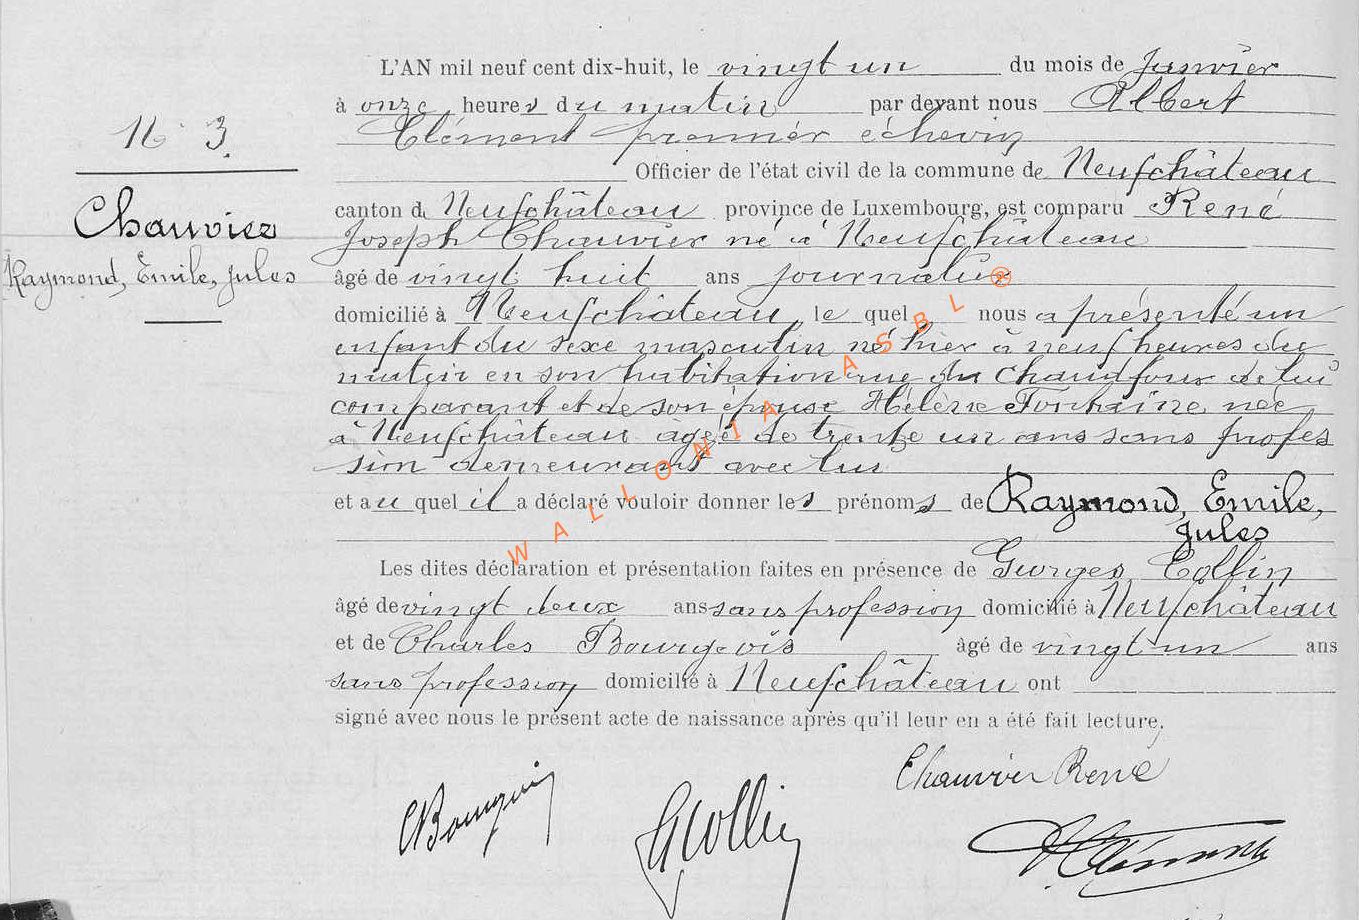 L'AN mil neuf cent dix-huit, le vingt un du mois de Janvier
à onze heures du matin par devant nous Albert
Clément premier échevin
Officier de l'état civil de la commune de Neufchâteau
canton de Neufchâteau province de Luxembourg, est comparu René
Joseph Chauvier né à Neufchâteau
âgé de vingt huit ans journalier
domicilié à Neufchâteau, le quel nous a présenté un
enfant du sexe masculin né hier à neuf heures du
matin en son habitation rue du Chaudfour de lui
comparant et de son épouse Hélène Fontaine née
à Neufchâteau âgée de trente un ans sans profes
sion demeurant avec lui
et au quel il a déclaré vouloir donner les prénoms de Raymond, Emile,
Jules
Les dites déclaration et présentation faites en présence de Georges Collin
âgé de vingt deux ans sans profession domicilié à Neufchâteau
et de Charles Bourgeois âgé de vingt un ans
sans profession domicilié à Neufchâteau ont
signé avec nous le présent acte de naissance après qu'il leur en a été fait lecture.
N° 3.
Chauvier
Raymond, Emile, Jules
Chauvier René
GCollin
AClément
WALLONIA ASBL ®